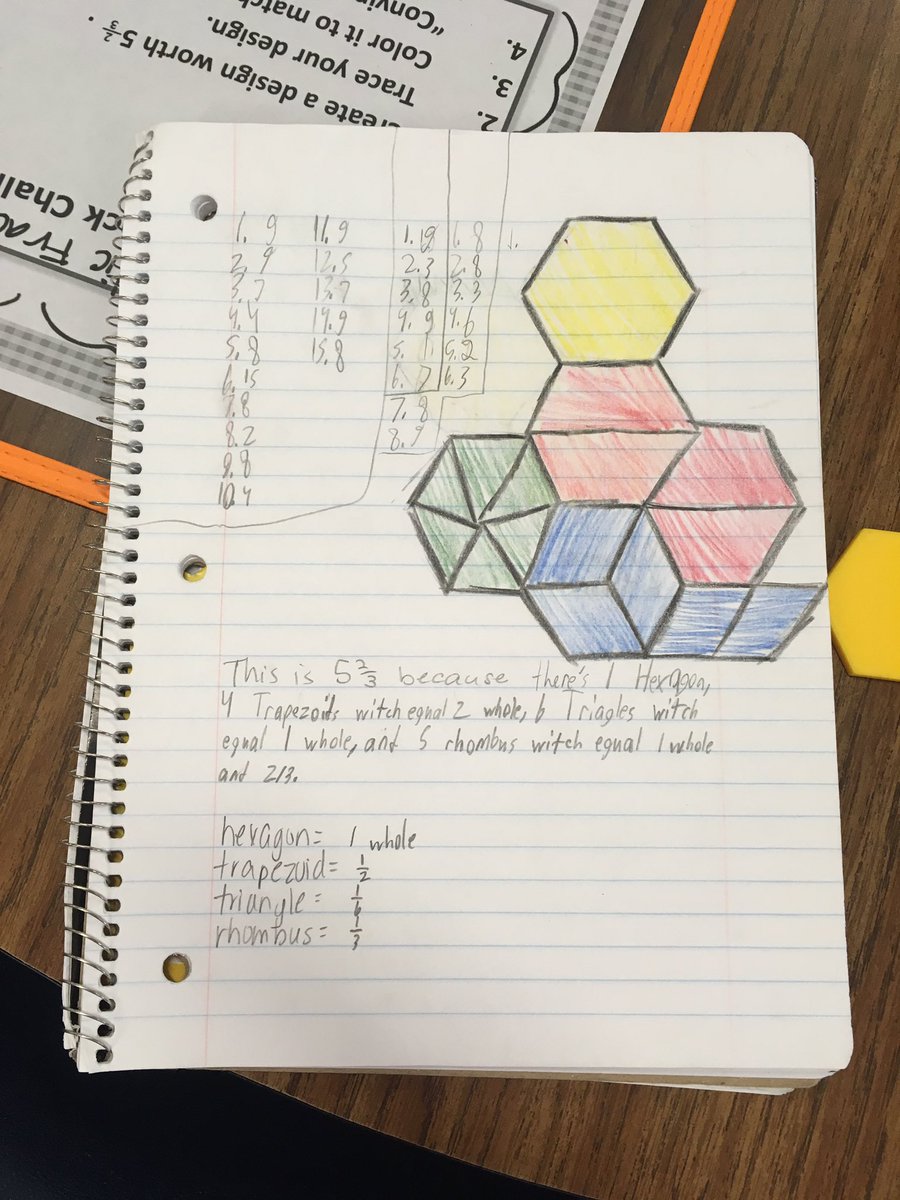 eate a design worth 5 2/3.
2.
3. Trace your design.
4. Color it to match
"Convin
ic Frac
ck Chall
1. 9 11. 9 1. 8
2. 9 12. 5 2. 3 2. 8
3. 7 13. 7 3. 8 3. 3
4. 4 14. 9 4. 9 4. 6
5. 8 15. 8 5. 1 5. 2
6. 15 6. 7 6. 3
7. 8 7. 8
8. 2 8. 9
9. 8
10. 4
This is 5 2/3 because there's 1 Hexagon,
4 Trapezoids witch equal 2 whole, 6 Triagles witch
equal 1 whole, and 5 rhombus witch equal 1 whole
and 2/3.
hexagon= 1 whole
trapezoid= 1/2
triangle= 1/6
rhombus= 1/3